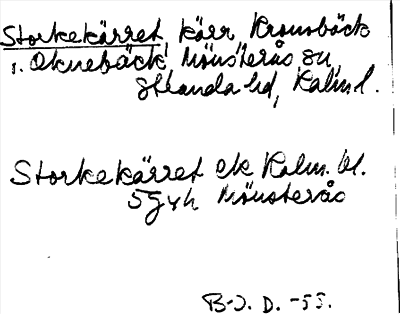 Storkekärret kärr Kronobäck
1. Oknebäck Mönsterås sn,
Stranda hd, Kalm l.
Storkekärret ek Kalm. bl.
5g4h Mönsterås
B-J. D. -55.